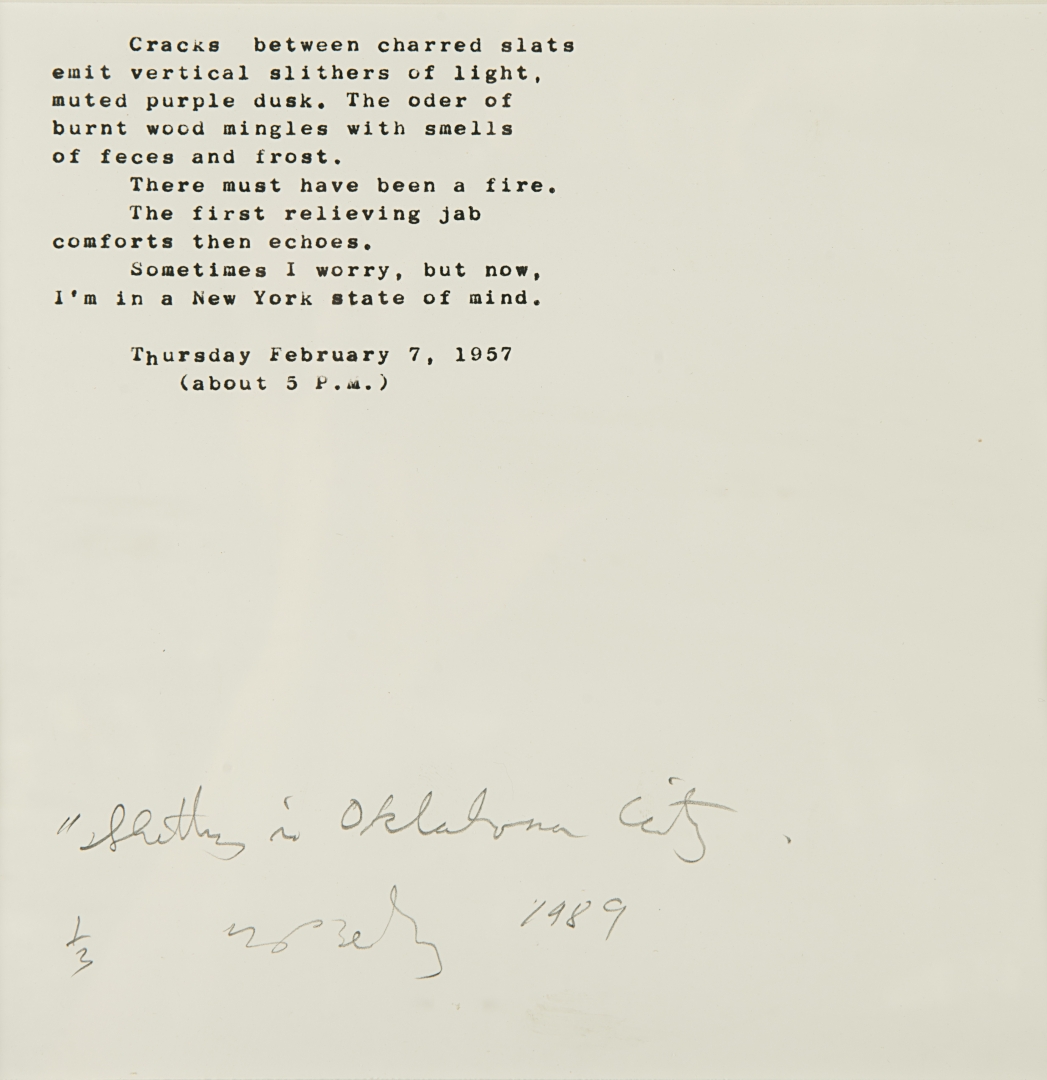 Cracks between charred slats
emit vertical slithers of light,
muted purple dusk. The oder of
burnt wood mingles with smells
of feces and frost.
There must have been a fire.
The first relieving jab
comforts then echoes.
Sometimes I worry, but now,
I'm in a New York state of mind.
Thursday February 7, 1957
(about 5 P.M.)
in Oklahoma City.
1/3 1989